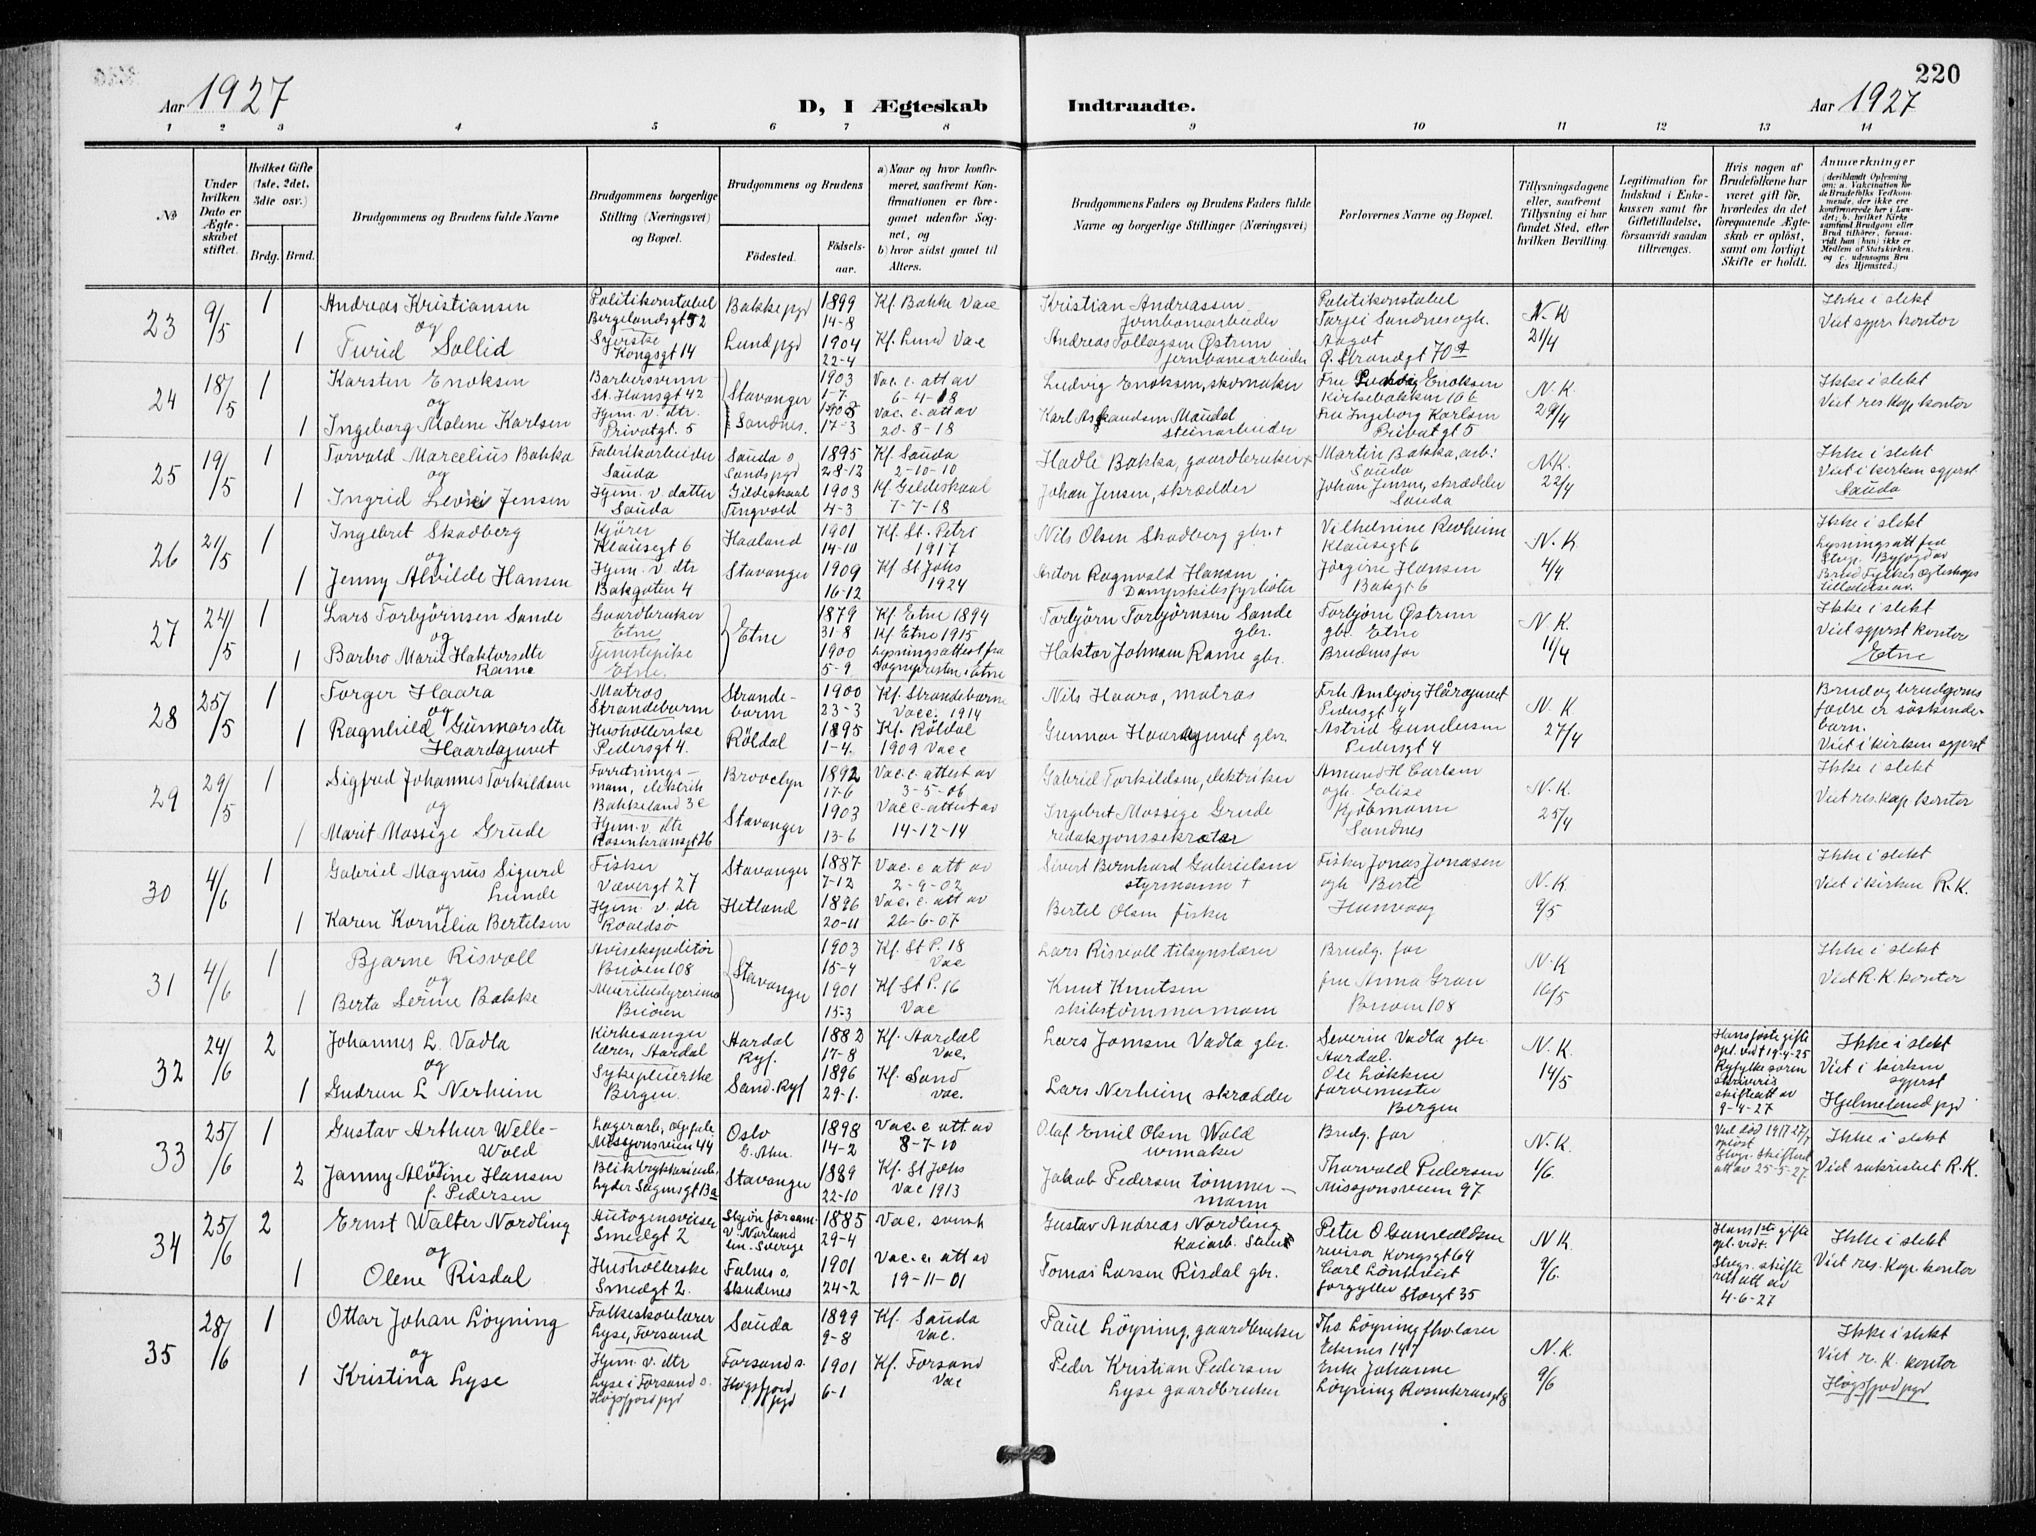 220
Aar 1927
D, I Ægteskab
Indtraadte.
Aar 1927
1 2 3 4 5 6 7 8 9 10 11 12 13 14
No
Under hvilken Dato er Ægteskabet stiftet.
Hvilket Gifte (1ste, 2det, 3die osv.)
Brdg. Brud.
Brudgommens og Brudens fulde Navne
Brudgommens borgerlige Stilling (Næringsvei) og Bopæl.
Brudgommens og Brudens
Fødested.
Fødsels-aar.
a) Naar og hvor konfirmeret, saafremt Konfirmationen er foregaaet udenfor Sognet, og
b) hvor sidst gaaet til Alters.
Brudgommens Faders og Brudens Faders fulde Navne og borgerlige Stillinger (Næringsvei)
Forlovernes Navne og Bopæl.
Tillysningsdagene eller, saafremt Tillysning ei har fundet Sted, efter hvilken Bevilling.
Legitimation for Indskud i Enkekassen samt for Giftetilladelse, forsaavidt saadan tiltrænges.
Hvis nogen af Brudefolkene har været gift før, hvorledes da det foregaaende Ægteskab er opløst, samt om lovligt Skifte er holdt.
Anmærkninger
(deriblandt Oplysning om: a. Vakcination for de Brudefolks Vedkommende, der ikke ere konfirmerede her i Landet; b. hvilket Kirkesamfund Brudgom eller Brud tilhører, forsaavidt han (hun) ikke er Medlem af Statskirken, og c. udensogns Brudes Hjemsted.)
23 9/5 1 Andreas Kristiansen Politikonstabel Bergelandsgt 52 Bakke pgd 1899 14-8 Kf. Bakke Vac Kristian Andreassen jernbanearbeider Politikonstabel Tarjei Sandnes ogh. N.K 21/4 Ikke i slekt Viet sgpr. kontor
og
1 Turid Sollid Syerske Kongsgt 14 Lund pgd 1904 22-4 Kf. Lund Vac Andreas Tollagsen Østrem jernbanearbeider Aagot Q. Strandgt 70A
24 18/5 1 Karsten Enoksen Barbersvenn St. Hansgt 42 Stavanger 1903 1-7 Vac. e. att av 6-4-18 Ludvig Enoksen, skomaker Fru Enoksen Kirkebakken 166 N.K. 29/4 Ikke i slekt Viet res kap kontor
og
1 Ingeborg Malene Karlsen Hjem. v. dtr. Privatgt. 5 Sandnes. 17-3 Vac. e. att av 20-8-18 Maudal steinarbeider Fru Ingeborg Karlsen Privatgt 5
25 19/5 1 Torvald Marcelius Bakka Fabrikarbeider Sauda Sauda s. Sands pgd 1895 28-12 Kf. Sauda 2-10-10 Hadle Bakka, gaardbruker + Martin Bakka, arb. Sauda N.K. 22/4 Ikke i slekt Viet i kirken sgprst Sauda
og
1 Ingrid Jensen Hjem. v. datter Sauda Gildeskaal 1903 4-3 Kf. Gildeskaal 7-7-18 Johan Jensen, skrædder Johan Jensen, skrædder Sauda
26 21/5 1 Ingebret Skadberg Kjører Klausegt 6 Haaland 1901 14-10 Kf. St. Petri 1917 Nils Olsen Skadberg gbr. + Vilhelmine Revheim Klausegt 6 N.K. 4/4 Ikke i slekt Lysningsatt fra Byfogd av
og
1 Jenny Alvilde Hansen Hjem. v. dtr Bakgaten 4 Stavanger 1909 16-12 Kf St Johs 1924 Anton Ragnvald Hansen Dampskibsfyrbøter Jørgine Hansen Bakgt 6 Brud Fylkes ægteskaps tilladelse av.
27 24/5 1 Lars Torbjørnsen Sande Gaardbruker Etne Etne 1879 31-8 Kf. Etne 1894 Torbjørn Torbjørnsen Sande gbr. Torbjørn Østrem gbr. Etne N.K. 11/4 Ikke i slekt Viet sgprst kontor Etne
og
1 Barbro Marie Haktorsdtr Rame Tjenestepike Etne. 1900 5-9 Kf Etne 1915 Lysningsattest fra Sognepresten i Etne Haktor Johnsen Rame gbr. Brudens far
28 25/5 1 Torger Haara Matros Strandebarm Strandebarm 1900 23-3 Kf. Strandebarm Vac. 1914 Nils Haara, matros Frk Ambjørg Håradjuvet Pedersgt 4 N.K 27/4 Brud og brudgoms fædre er søskendebarn. Viet i kirken sgprst
og
1 Ragnhild Gunnarsdtr Haardajuvet Husholderske Pedersgt 4. Røldal 1895 1-4. Kf. Røldal 1909 Vac Gunnar Haaradjuvet gbr. Astrid Gundersen Pedersgt 4
29 29/5 1 Sigfred Johannes Torkildsen Forretningsmann, elektrik Bakkeland 3c Brooclyn 1892 17-6 Vac. e. attest av 3-5-06 Gabriel Torkildsen, elektriker Amund H Carlsen ogh. Elise N.K. 25/4 Ikke i slekt Viet res. kap kontor
og
1 Marit Mossige Grude Hjem. v. dtr Rosenkransgt 26 Stavanger 1903 13-6 Vac e-attest av 14-12-14 Ingebret Mossige Grude redaksjonssekretær Kjøbmann Sandnes
30 4/6 1 Gabriel Magnus Sigurd Lunde Fisker Vævergt 27 Stavanger 1887 7-12 Vac. e att av 2-9-02 Sivert Bernhard Gabrielsen styrmann + Fisker Jonas Jonasen ogh Berte N.K. 9/5 Ikke i slekt Viet i kirken R.K.
og
1 Karen Kornelia Bertelsen Hjem. v. dtr Roaldsø Hetland 1896 20-11 Vac. e. att av 26-6-07 Bertel Olsen fisker Hanvaag
31 4/6 1 Bjarne Risvoll Avisekspeditør Buøen 108 Stavanger 1903 15-4 Kf. St P. 18 Vac Lars Risvoll tilsynslærer Brudg. far N.K 16/5 Ikke i slekt Viet R.K. kontor
og
1 Berta Serine Bakke Buøen 1901 15-3 Kf St P. 16 Vac Knut Knutsen skibstømmermann fru Anna Gran Buøen 108
32 24/6 2 Johannes L. Vadla Kirkesanger lærer, Aardal Aardal Ryf. 1882 17-8 Kf. Aardal Vac. Lars Jonsen Vadla gbr. Severin Vadla gbr Aardal. N.K. 14/5 Hans første gifte opl. ved 19-4-25 Ryfylke sorenskriveris skifteatt av 9-4-27 Ikke i slekt Viet i kirken sgprst Hjelmeland pgd
og
1 Gudrun L Nerheim Sykepleierske Bergen. Sand. Ryf 1896 29-1. Kf. Sand vac. Lars Nerheim skrædder Ole Løkken farvemester Bergen
33 25/6 1 Gustav Arthur Welle-Wold Lagerarb. Missjonsveien 44 Oslo G. Aker. 1898 14-2 Vac. e att av 8-7-10 Olaf Emil Olsen Wold urmaker Brudg. far N.K. 1/6. Ved død 1917 opløst Skifteatt av 25-5-27. Ikke i slekt Viet sakristiet R.K.
og
2 Janny Hansen f. Pedersen Lyder Sagensgt 13a Stavanger 1889 22-10 Kf. St Johs Vac 1913 Jakob Pedersen tømmermann Thorvald Pedersen Missjonsveien 97
34 25/6 2 Ernst Walter Nordling Autogensveiser Smedgt 2 Skjøn försam. V. Norland ln. Sverige 1885 29-4 Vac. svensk Gustav Andreas Nordling Kaiarb. Peter O Gunvaldsen revisor Kongsgt 64 N.K. 9/6. Hans 1ste gifte opl. ved. Stvgr. skifterett att av 4-6-27 Ikke i slekt Viet res. kap. kontor
og
1 Olene Risdal Husholderske Smedgt 2. Falnes s. Skudenes 1901 24-2 Vac. e. att av 19-11-01 Tomas Larsen Risdal gbr. Carl Lönkvist forgylder Storgt 35
35 28/6 1 Ottar Johan Løyning Folkeskolelærer Lyse, Forsand Sauda 1899 9-8 Kf. Sauda Vac. Paul Løyning, gaardbruker Ths Løyning fhv lærer Eiknes 147 N.K. 9/6 Ikke i slekt Viet r. K. kontor Høgsfjord pgd
og
1 Kristina Lyse Hjem. v. dtr Lyse i Forsand s. Høgsfjord pgd Forsand s. Høgsfjord pgd 1901 6-1 Kf. Forsand Vac Peder Kristian Pedersen Lyse gaardbruker Enke Johanne Løyning Rosenkransgt 8